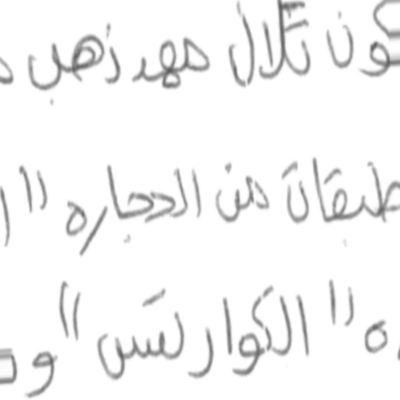 تلال مهد ذهب
طبقات من الحجاره "
" الكوارتس " و